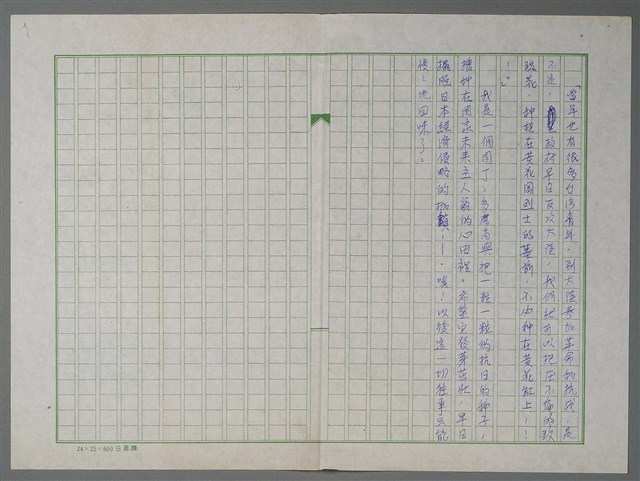 「當年也有很多台灣青年，到大陸參加革命和抗戰
不是，政府早日反攻大陸，我們就可以把
玫花，種植在黃花岡烈士的墓前，不必種在黃花缸上！！
！」。
我是一個園丁，多麼高興把一粒一粒的抗日的種子，
播種在國家未來主人翁的心田裡，希望它發芽茁壯，早日
擺脫日本經濟侵略的枷鎖！！唉！以後這一切往事只能
慢慢地回味了。
24×25=600